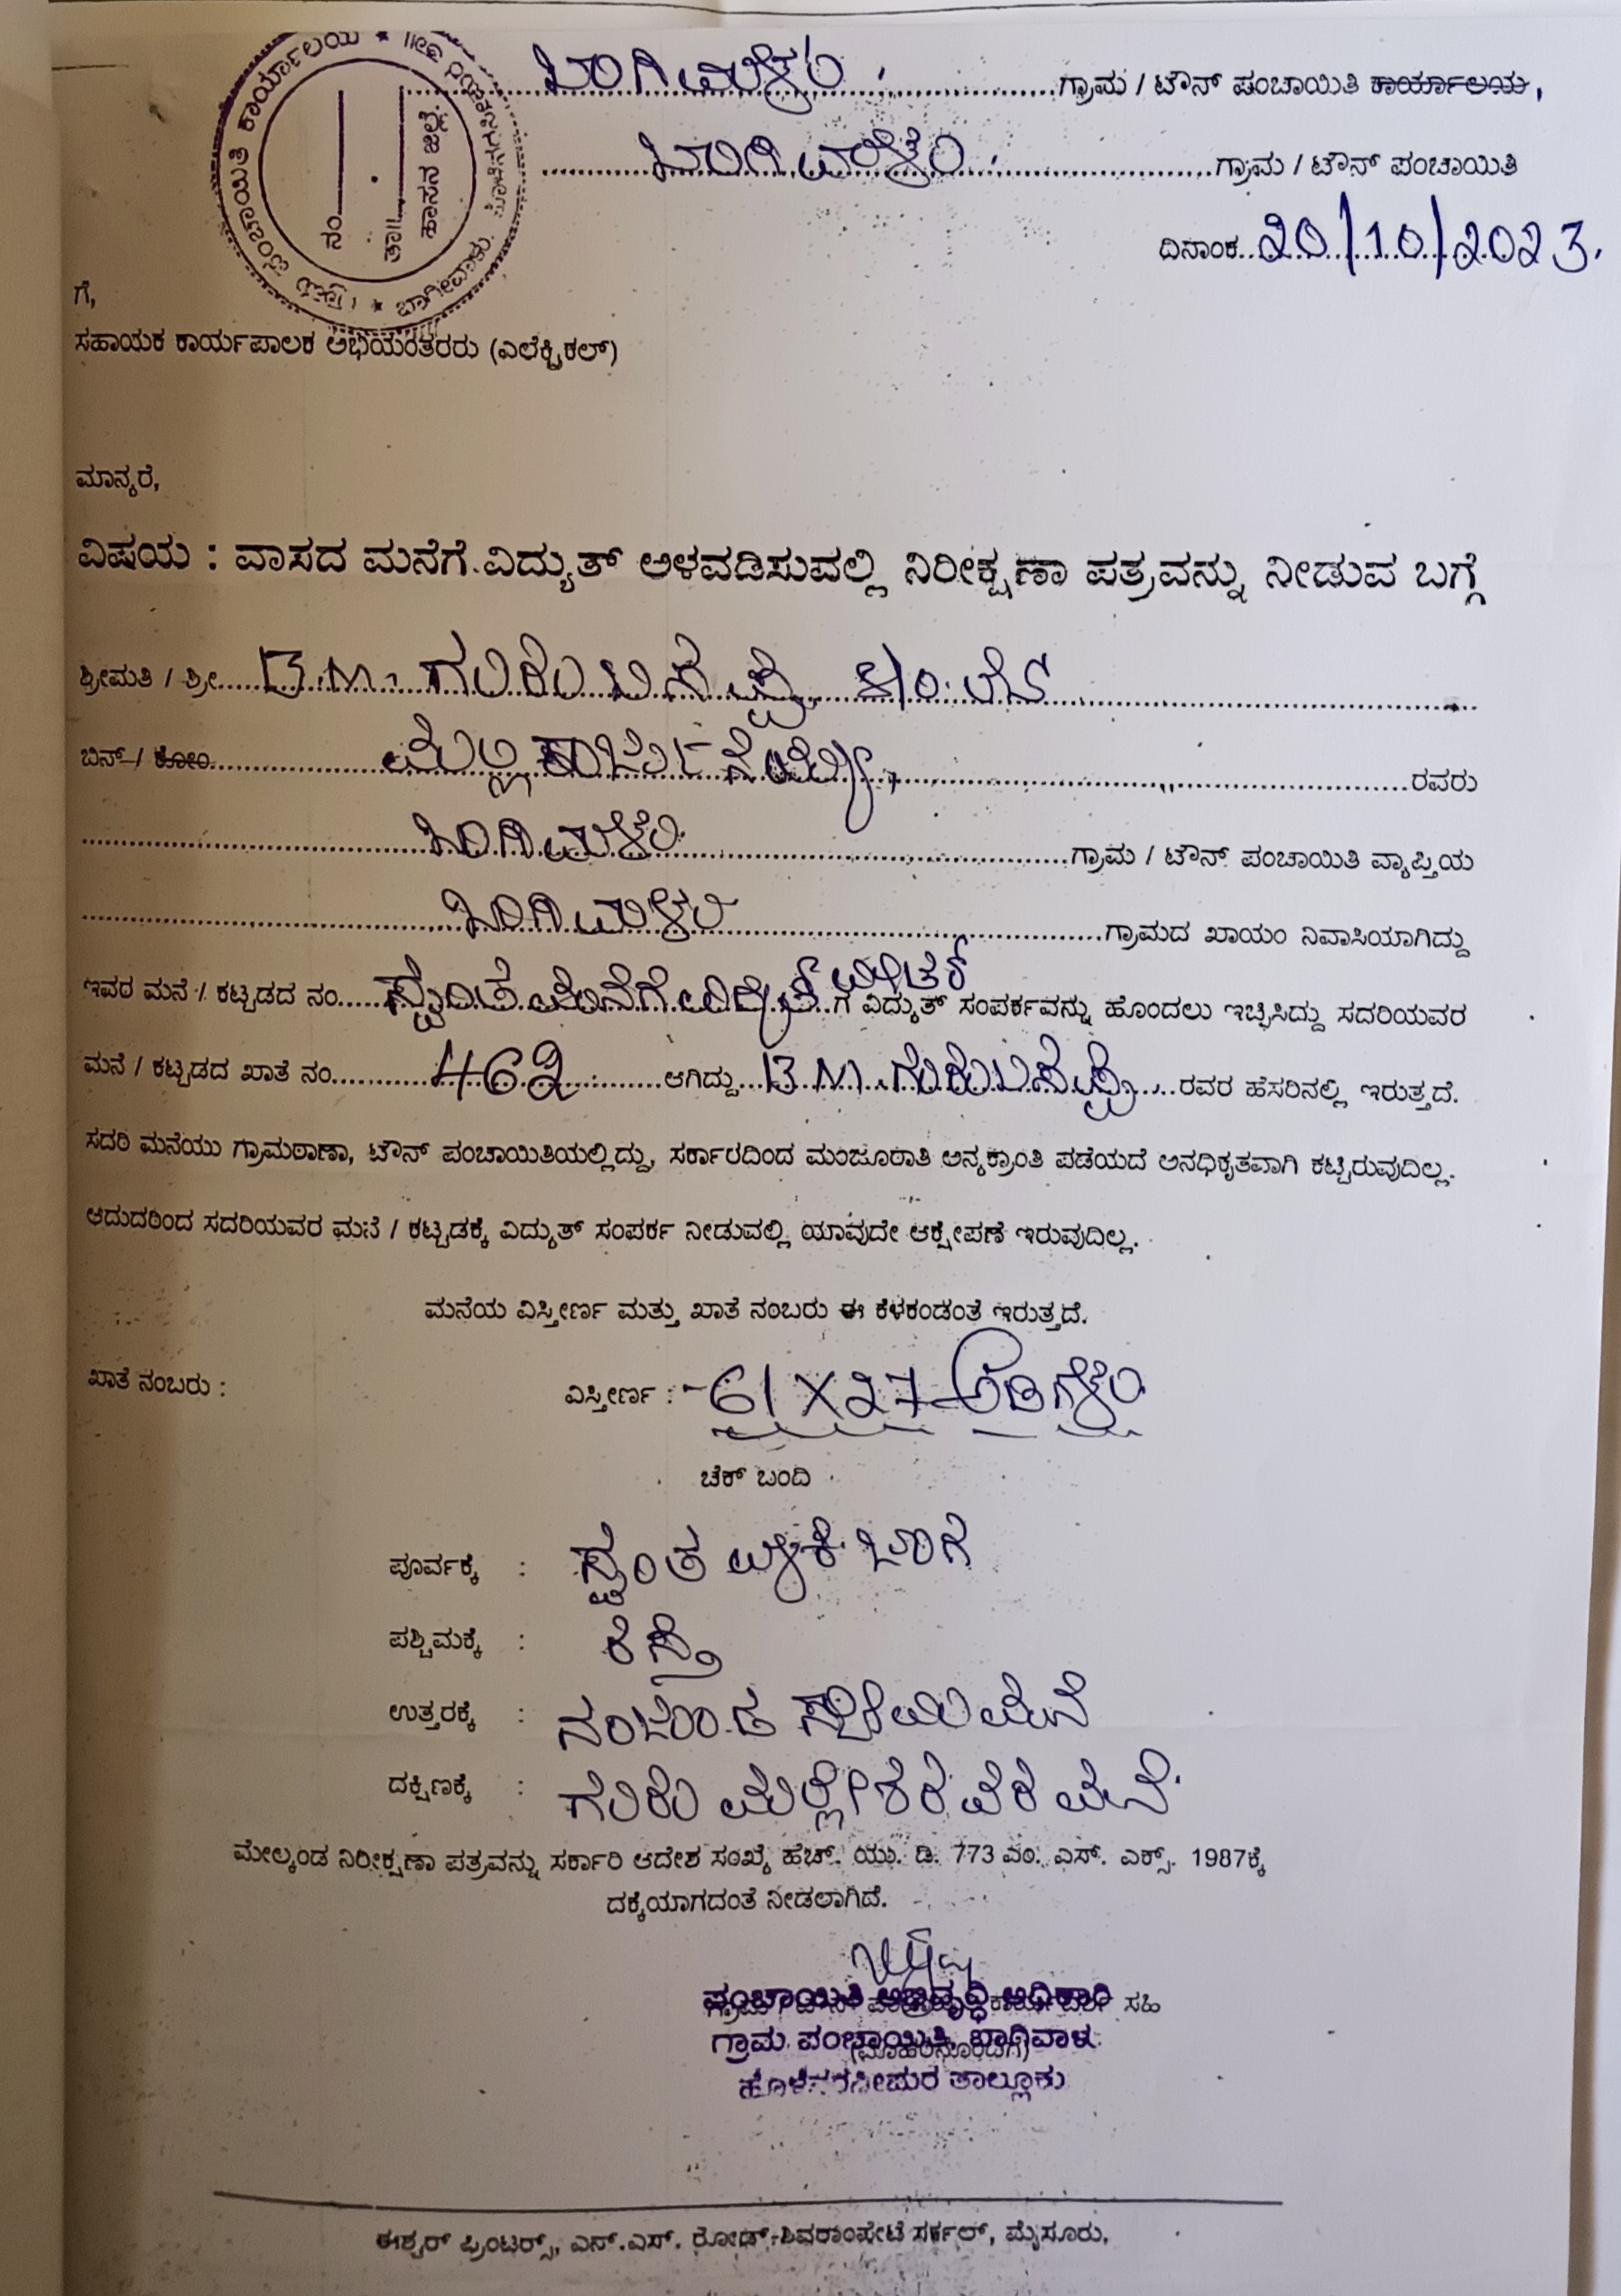 ಬಾಗಿವಾಳು ಗ್ರಾಮ / ಟೌನ್ ಪಂಚಾಯಿತಿ ಕಾರ್ಯಾಲಯ,
ಬಾಗಿವಾಳು ಗ್ರಾಮ / ಟೌನ್ ಪಂಚಾಯಿತಿ
ದಿನಾಂಕ 20/10/2023.
ಗ್ರಾಮ ಪಂಚಾಯಿತಿ ಕಾರ್ಯಾಲಯ * ಬಾಗೀವಾಳು
ನಂ
ತಾ॥
ಹಾಸನ ಜಿಲ್ಲೆ.
ಗೆ,
ಸಹಾಯಕ ಕಾರ್ಯಪಾಲಕ ಅಭಿಯಂತರರು (ಎಲೆಕ್ಟ್ರಿಕಲ್)
ಮಾನ್ಯರೆ,
ವಿಷಯ : ವಾಸದ ಮನೆಗೆ ವಿದ್ಯುತ್ ಅಳವಡಿಸುವಲ್ಲಿ ನಿರೀಕ್ಷಣಾ ಪತ್ರವನ್ನು ನೀಡುವ ಬಗ್ಗೆ
ಶ್ರೀಮತಿ / ಶ್ರೀ B.M. ಗುರುಬಸಪ್ಪ
ಬಿನ್ / ಕೋಂ ಮಲ್ಲಿಕಾರ್ಜುನಯ್ಯ, ರವರು
ಬಾಗಿವಾಳು ಗ್ರಾಮ / ಟೌನ್ ಪಂಚಾಯಿತಿ ವ್ಯಾಪ್ತಿಯ
ಬಾಗಿವಾಳು ಗ್ರಾಮದ ಖಾಯಂ ನಿವಾಸಿಯಾಗಿದ್ದು
ಇವರ ಮನೆ / ಕಟ್ಟಡದ ನಂ ಸ್ವಂತ ಮನೆಗೆ ಗೆ ವಿದ್ಯುತ್ ಸಂಪರ್ಕವನ್ನು ಹೊಂದಲು ಇಚ್ಛಿಸಿದ್ದು ಸದರಿಯವರ
ಮನೆ / ಕಟ್ಟಡದ ಖಾತೆ ನಂ 462 ಆಗಿದ್ದು B M ಗುರುಬಸಪ್ಪ ರವರ ಹೆಸರಿನಲ್ಲಿ ಇರುತ್ತದೆ.
ಸದರಿ ಮನೆಯು ಗ್ರಾಮಠಾಣಾ, ಟೌನ್ ಪಂಚಾಯಿತಿಯಲ್ಲಿದ್ದು, ಸರ್ಕಾರದಿಂದ ಮಂಜೂರಾತಿ ಅನ್ಯಕ್ರಾಂತಿ ಪಡೆಯದೆ ಅನಧಿಕೃತವಾಗಿ ಕಟ್ಟಿರುವುದಿಲ್ಲ.
ಆದುದರಿಂದ ಸದರಿಯವರ ಮನೆ / ಕಟ್ಟಡಕ್ಕೆ ವಿದ್ಯುತ್ ಸಂಪರ್ಕ ನೀಡುವಲ್ಲಿ ಯಾವುದೇ ಆಕ್ಷೇಪಣೆ ಇರುವುದಿಲ್ಲ.
ಮನೆಯ ವಿಸ್ತೀರ್ಣ ಮತ್ತು ಖಾತೆ ನಂಬರು ಈ ಕೆಳಕಂಡಂತೆ ಇರುತ್ತದೆ.
ಖಾತೆ ನಂಬರು : ವಿಸ್ತೀರ್ಣ : 61 X 27 ಅಡಿಗಳು
ಚೆಕ್ ಬಂದಿ
ಪೂರ್ವಕ್ಕೆ : ಸ್ವಂತ ಜಾಗ
ಪಶ್ಚಿಮಕ್ಕೆ : ರಸ್ತೆ
ಉತ್ತರಕ್ಕೆ : ನಂಜುಂಡಸ್ವಾಮಿ ಮನೆ
ದಕ್ಷಿಣಕ್ಕೆ : ಗುರುಮಲ್ಲೇಶರವರ ಮನೆ
ಮೇಲ್ಕಂಡ ನಿರೀಕ್ಷಣಾ ಪತ್ರವನ್ನು ಸರ್ಕಾರಿ ಆದೇಶ ಸಂಖ್ಯೆ ಹೆಚ್. ಯು. ಡಿ. 773 ಎಂ. ಎಸ್. ಎಕ್ಸ್. 1987ಕ್ಕೆ
ದಕ್ಕೆಯಾಗದಂತೆ ನೀಡಲಾಗಿದೆ.
ಪಂಚಾಯಿತಿ ಅಭಿವೃದ್ಧಿ ಅಧಿಕಾರಿ
ಸಹಿ
ಗ್ರಾಮ ಪಂಚಾಯಿತಿ, ಬಾಗಿವಾಳು
(ಮೊಹರಿನೊಂದಿಗೆ)
ಹೊಳೆನರಸೀಪುರ ತಾಲ್ಲೂಕು
ಈಶ್ವರ್ ಪ್ರಿಂಟರ್ಸ್, ಎನ್.ಎಸ್. ರೋಡ್, ಶಿವರಾಂಪೇಟೆ ಸರ್ಕಲ್, ಮೈಸೂರು.